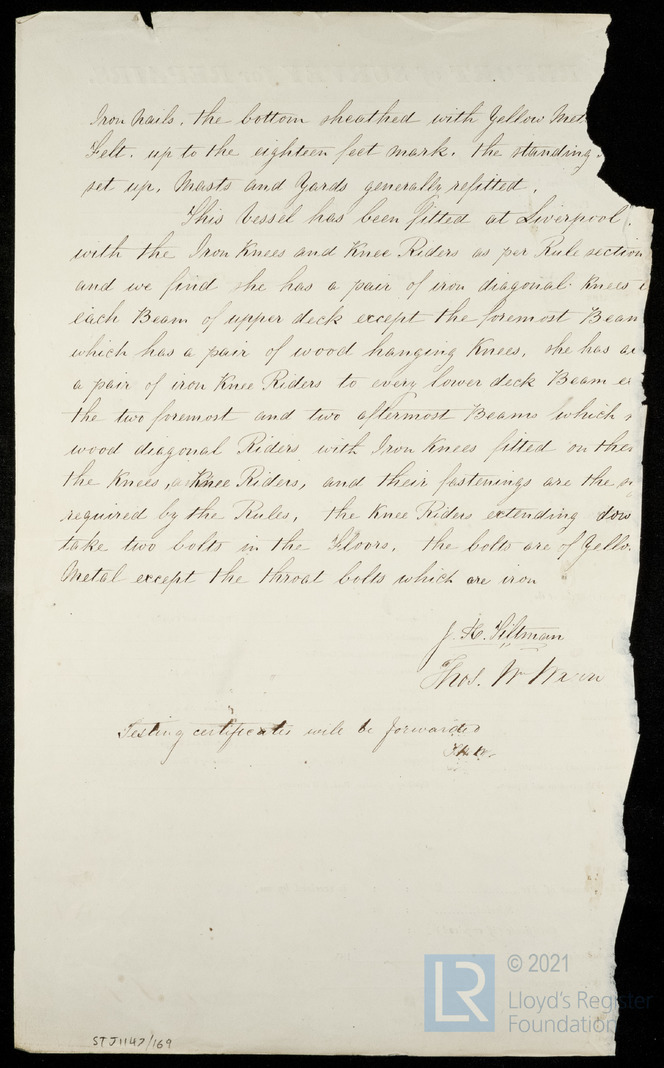 REPORT of SURVEY for REPAIRS,
Iron Nails. the bottom sheathed with Yellow Met
Felt. up to the eighteen feet mark. the standing
set up, Masts and Yards generally refitted.
This Vessel has been fitted at Liverpool.
with the Iron Knees and Knee Riders as per Rule section
and we find she has a pair of iron diagonal Knees
each Beam of upper deck except the foremost Beam
which has a pair of wood hanging Knees, she has a
a pair of iron Knee Riders to every lower deck Beam e
the two foremost and two aftermost Beams which
wood diagonal Riders with Iron Knees fitted on the
the Knees, Knee Riders, and their fastenings are the
required by the Rules, the Knee Riders extending dow
take two bolts in the Floors. the bolts are of Yello
Metal except the throat bolts which are iron
J. H. Tiltman
Thos. W
Testing certificates will be forwarded
ST J1147/169
LR
© 2021
Lloyd's Register
Foundation